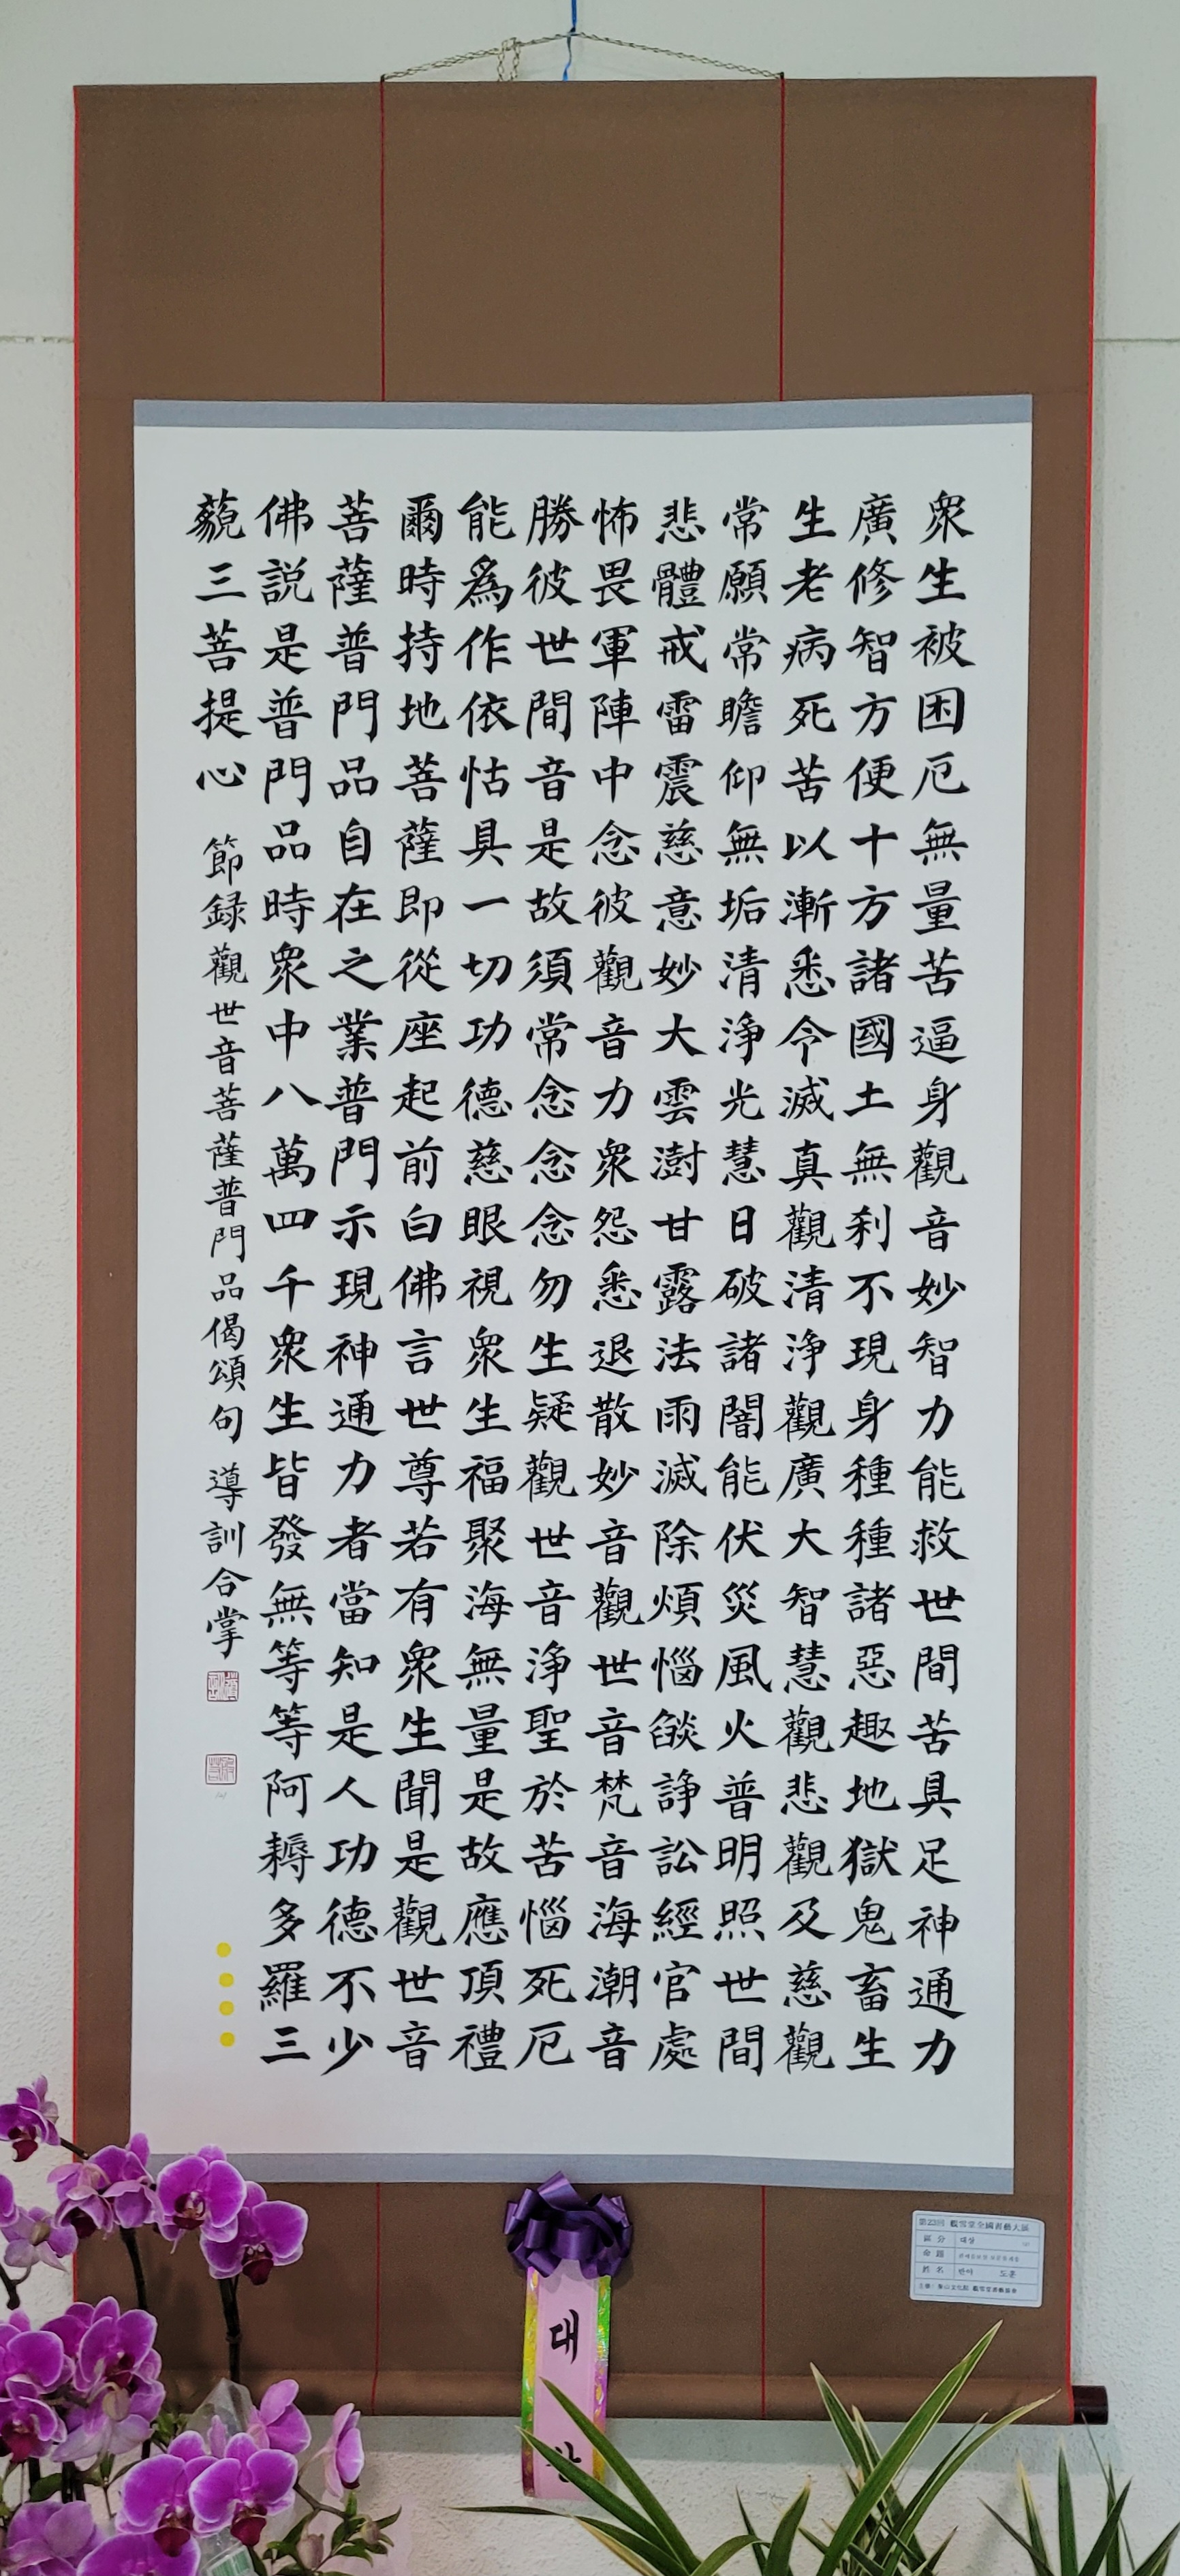 衆生被困厄無量苦逼身觀音妙智力能救世間苦具足神通力
廣修智方便十方諸國土無刹不現身種種諸惡趣地獄鬼畜生
生老病死苦以漸悉令滅真觀清浄觀廣大智慧觀悲觀及慈觀
常願常瞻仰無垢清浄光慧日破諸闇能伏災風火普明照世間
悲體戒雷震慈意妙大雲澍甘露法雨滅除煩惱燄諍訟經官處
怖畏軍陣中念彼觀音力衆怨悉退散妙音觀世音梵音海潮音
勝彼世間音是故須常念念念勿生疑觀世音浄聖於苦惱死厄
能爲作依怙具一切功德慈眼視衆生福聚海無量是故應頂禮
爾時持地菩薩即從座起前白佛言世尊若有衆生聞是觀世音
菩薩普門品自在之業普門示現神通力者當知是人功德不少
佛説是普門品時衆中八萬四千衆生皆發無等等阿耨多羅三
藐三菩提心 節録觀世音菩薩普門品偈頌句 導訓合掌
대상
第23回 觀雪堂全國書藝大展
區分 대상
命題
姓名 반야 도훈